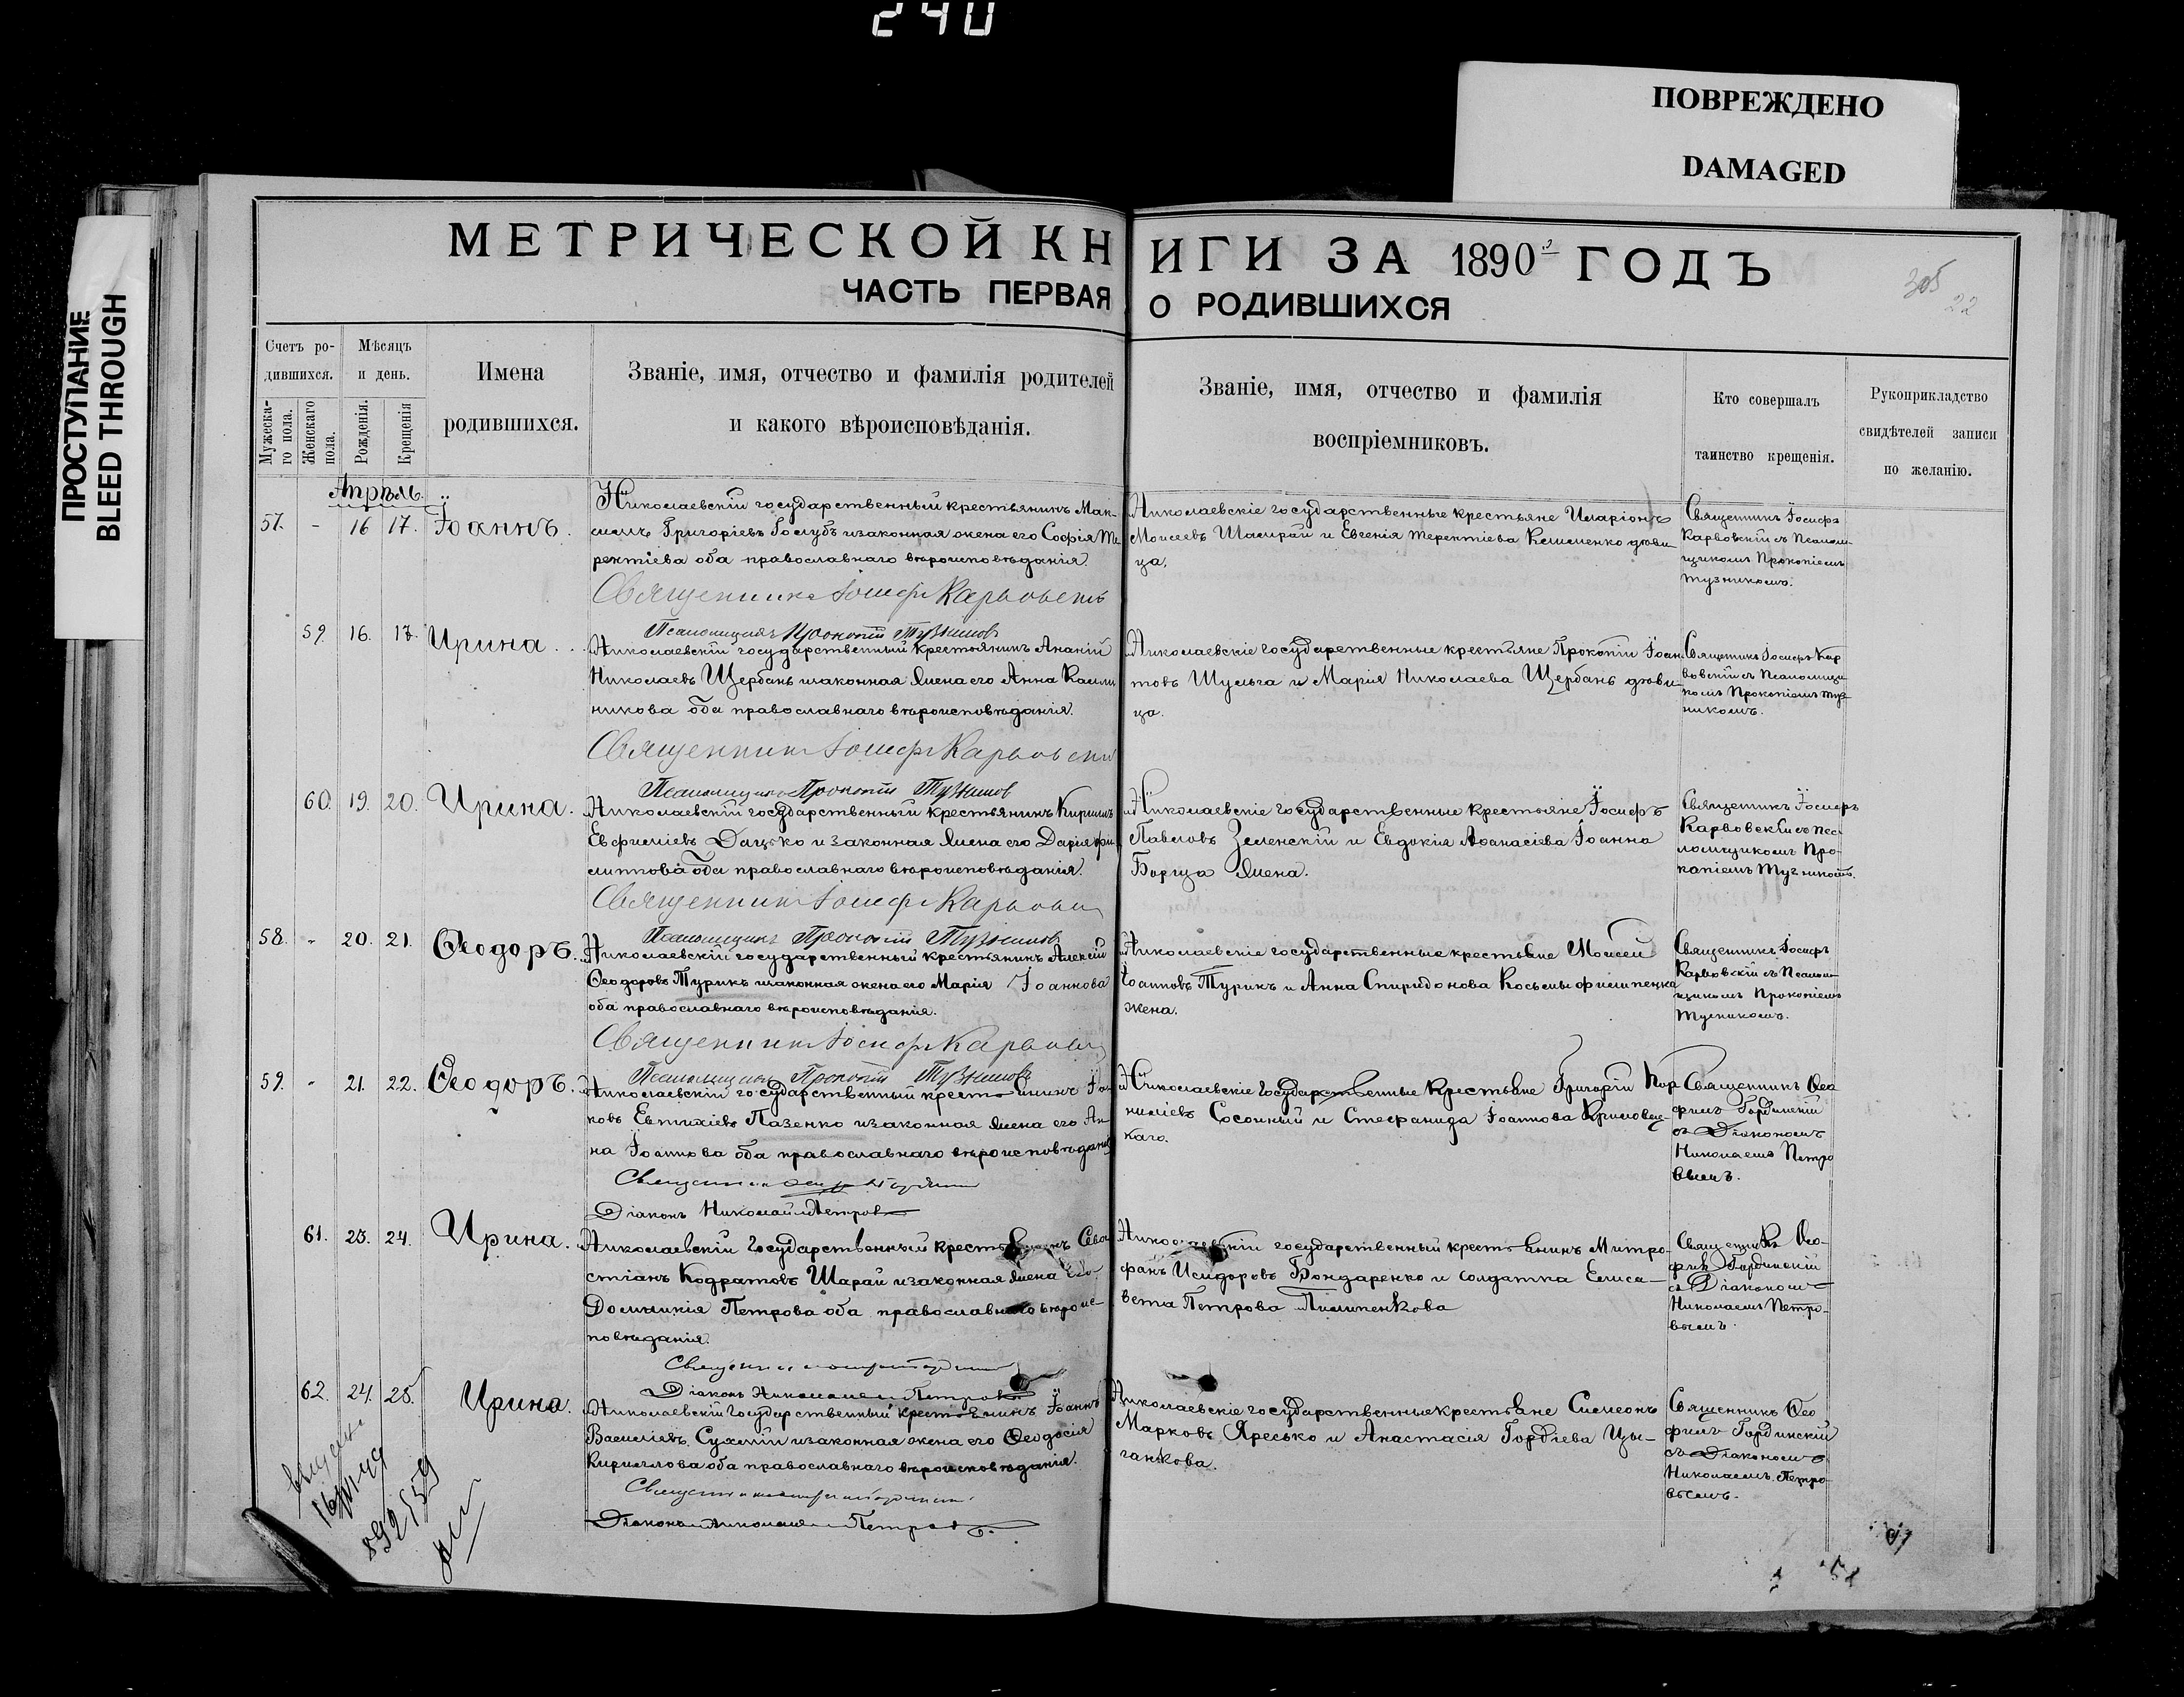 240
ПОВРЕЖДЕНО
DAMAGED
ПРОСТУПАНИЕ
BLEED THROUGH
МЕТРИЧЕСКОЙ КНИГИ ЗА 1890 ГОДЪ
ЧАСТЬ ПЕРВАЯ О РОДИВШИХСЯ
305
22
Счетъ ро-
дившихся.
Мужеска-
го пола.
Женскаго
пола.
Мѣсяцъ
и день.
Рожденія.
Крещенія
Имена
родившихся.
Званіе, имя, отчество и фамилія родителей
и какого вѣроисповѣданія.
Званіе, имя, отчество и фамилія
воспріемниковъ.
Кто совершалъ
таинство крещенія.
Рукоприкладство
свидѣтелей записи
по желанію.
Апрѣль.
57. - 16 17. Іоаннъ.
Николаевскій государственный крестьянинъ Мак-
симъ Григоріевъ Голубъ и законная жена его Софія Те
рентіева оба православнаго вѣроисповѣданія.
Священникъ Іосифъ Карвовскій
Псаломщикъ Прокопій
Николаевскіе государственные крестьяне Иларіонъ
Моисеевъ Шамрай и Евгенія Терентіева дѣви-
ца.
Священникъ Іосифъ
Карвовскій съ Псалом-
щикомъ Прокопіемъ
59. 16. 17. Ирина.
Николаевскій государственный крестьянинъ Ананій
Николаевъ Щербань и законная жена его Анна
никова оба православнаго вѣроисповѣданія.
Священникъ Іосифъ Карвовскій
Псаломщикъ Прокопій
Николаевскіе государственные крестьяне Прокопій Іоан
новъ Шульга и Марія Николаева Щербань дѣви-
ца.
Священникъ Іосифъ Кар
вовскій съ Псаломщи-
комъ Прокопіемъ
60. 19. 20. Ирина.
Николаевскій государственный крестьянинъ Кириллъ
Евфиміевъ Дацько и законная жена его Дарія Фи
липпова оба православнаго вѣроисповѣданія.
Священникъ Іосифъ
Псаломщикъ Прокопій
Николаевскіе государственные крестьяне Іосифъ
Павловъ Зеленскій и Евдокія Аѳанасіева Іоанна
Борща жена.
Священникъ Іосифъ
Карвовскій съ Пса-
ломщикомъ Про-
копіемъ
58. - 20. 21. Ѳеодоръ.
Николаевскій государственный крестьянинъ Алексій
Ѳеодоровъ Турикъ и законная жена его Марія Іоаннова
оба православнаго вѣроисповѣданія.
Священникъ Іосифъ
Псаломщикъ Прокопій
Николаевскіе государственные крестьяне Моисей
Іоанновъ Турикъ и Анна Спиридонова Косьмы Филипенка
жена.
Священникъ Іосифъ
Карвовскій съ Псалом-
щикомъ Прокопіемъ
59. - 21. 22. Ѳеодоръ.
Николаевскій государственный крестьянинъ
ковъ Евтихіевъ Пазенко и законная жена его Ан
на Іоаннова оба православнаго вѣроисповѣданія
Священникъ
Діаконъ Николай Петровъ
Николаевскіе государственные крестьяне Григорій Кор
ниліевъ Сосоный и Стефанида Іоаннова
каго.
Священникъ Ѳео
филъ Гординскій
съ Діакономъ
Николаемъ Петро
вымъ.
61. 23. 24. Ирина.
Николаевскій государственный крестьянинъ Сева
стіанъ Кодратовъ Шарай и законная жена его
Домникія Петрова оба православнаго вѣроис-
повѣданія.
Священникъ
Діаконъ Николай Петровъ
Николаевскій государственный крестьянинъ Митро-
фанъ Исидоровъ Бондаренко и солдатка Елиса-
вета Петрова Пилипенкова
Священникъ Ѳео-
филъ Гординскій
съ Діакономъ
Николаемъ Петро-
вымъ.
62. 24. 25. Ирина.
Николаевскій государственный крестьянинъ Іоаннъ
Василіевъ Сухій и законная жена его Ѳеодосія
Кириллова оба православнаго вѣроисповѣданія.
Священникъ
Діаконъ Николай Петровъ.
Николаевскіе государственные крестьяне Симеонъ
Марковъ Яресько и Анастасія Гордіева Цы-
ганкова.
Священникъ Ѳео
филъ Гординскій
съ Діакономъ
Николаемъ Петро-
вымъ.